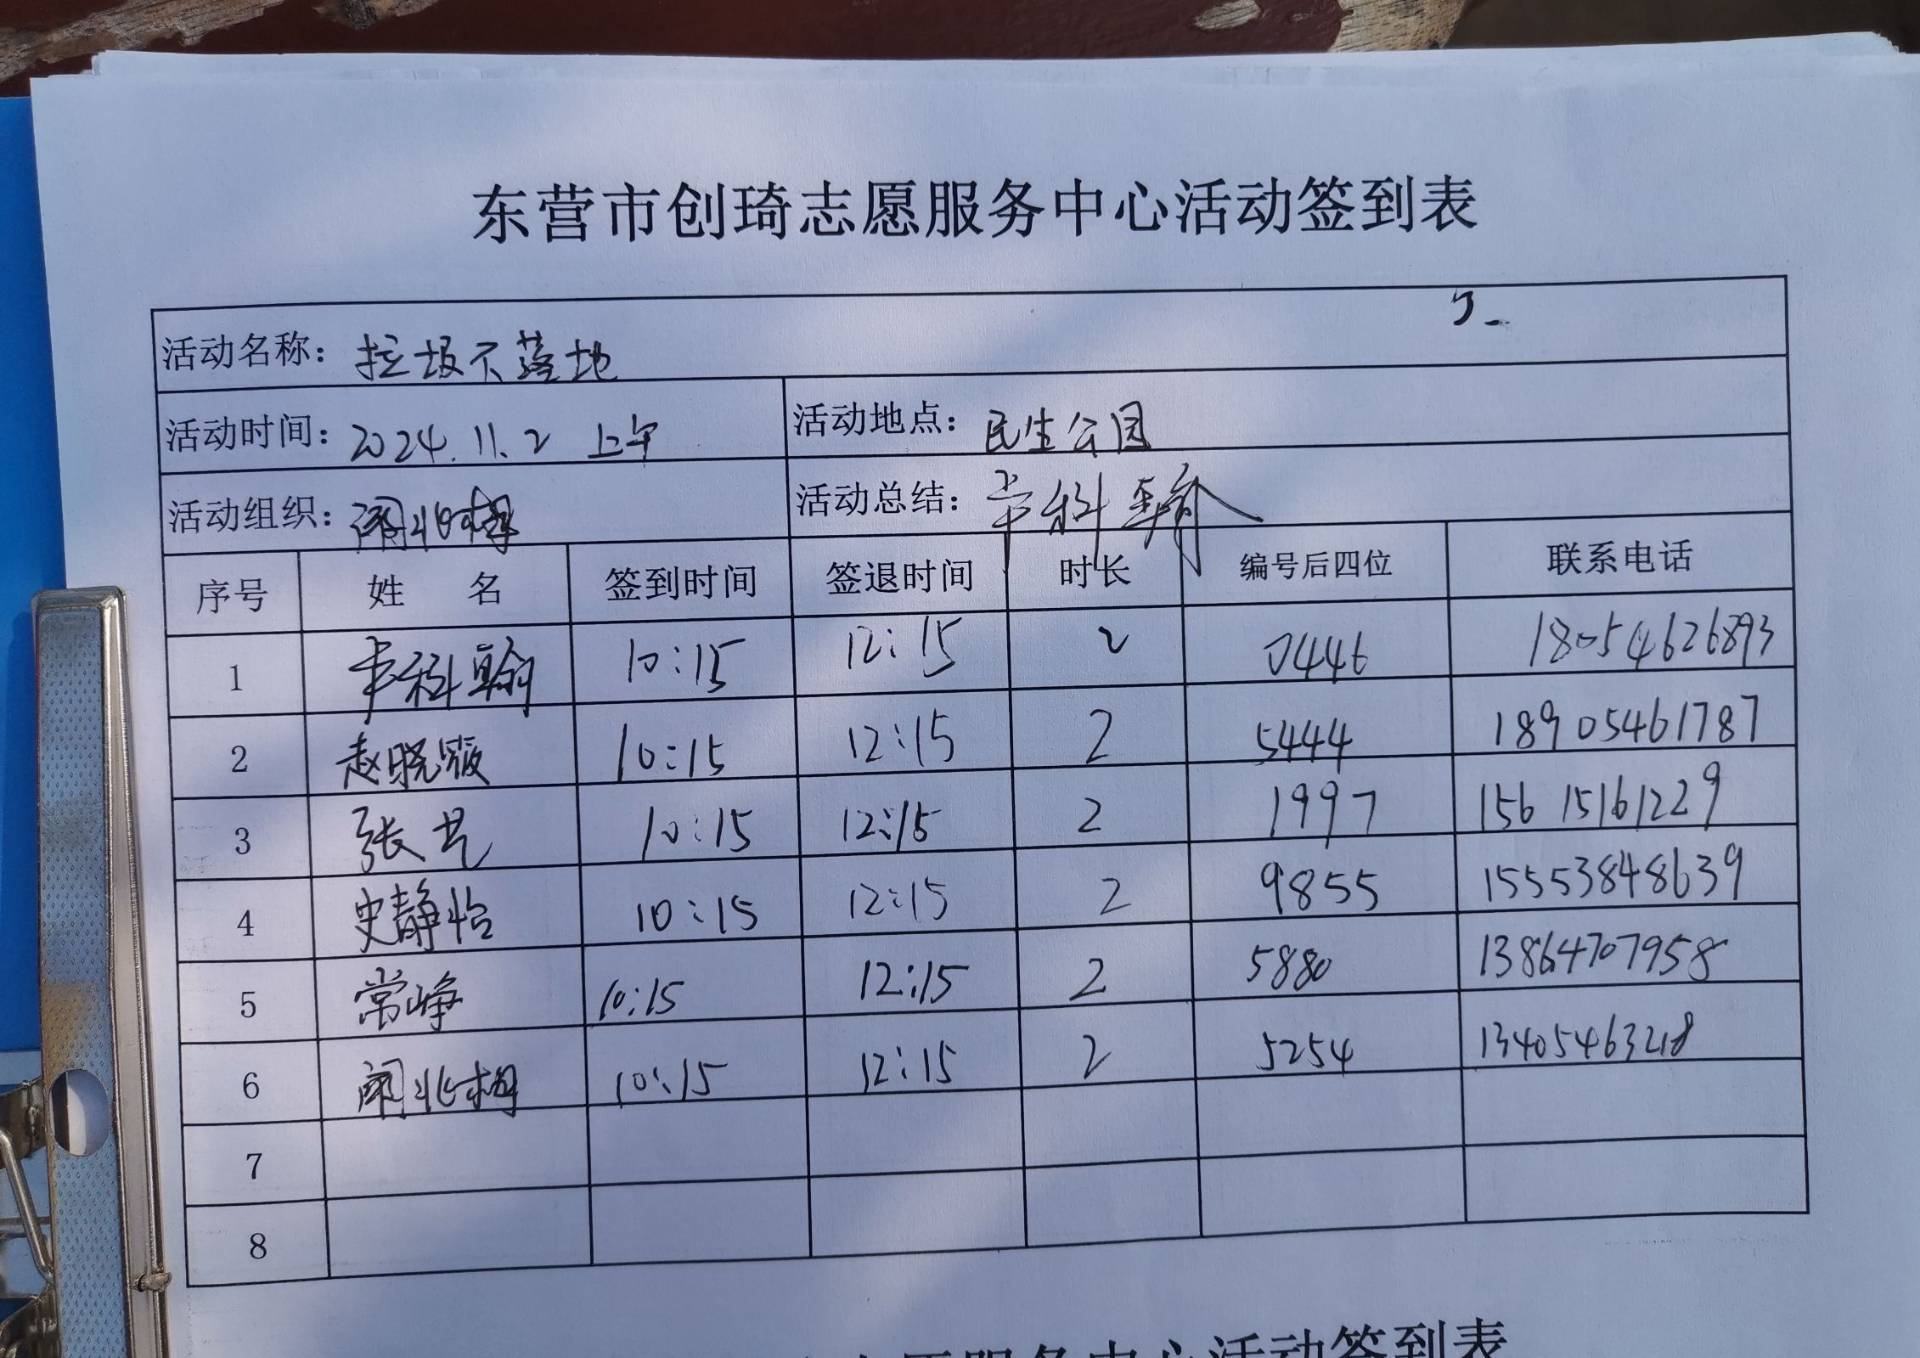 东营市创琦志愿服务中心活动签到表
活动名称：垃圾不落地
活动时间：2024.11.2 上午 活动地点：民生公园
活动组织： 活动总结：
序号 姓 名 签到时间 签退时间 时长 编号后四位 联系电话
1 10:15 12:15 2 0446 18054626893
2 赵晓璇 10:15 12:15 2 5444 18905461787
3 张艺 10:15 12:15 2 1997 15615161229
4 史静怡 10:15 12:15 2 9855 15553848639
5 常峥 10:15 12:15 2 5880 13864707958
6 10:15 12:15 2 5254 13405463218
7
8
志愿服务中心活动签到表